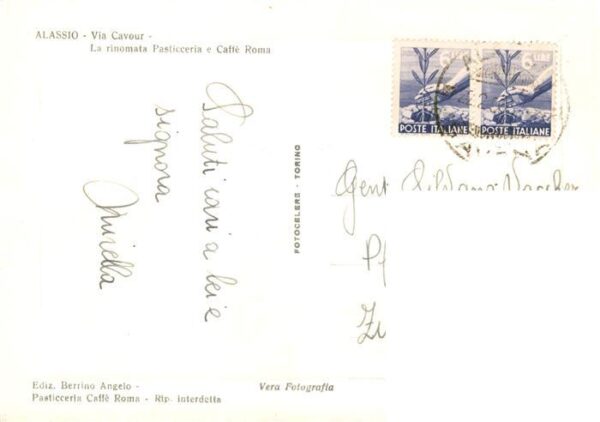 ALASSIO - Via Cavour -
La rinomata Pasticceria e Caffè Roma
6 LIRE
POSTE ITALIANE
POSTE ITALIANE
Saluti cari a lei e
signora
Mirella
FOTOCELERE - TORINO
Gent
Ediz. Berrino Angelo -
Pasticceria Caffè Roma - Rip. interdetta
Vera Fotografia